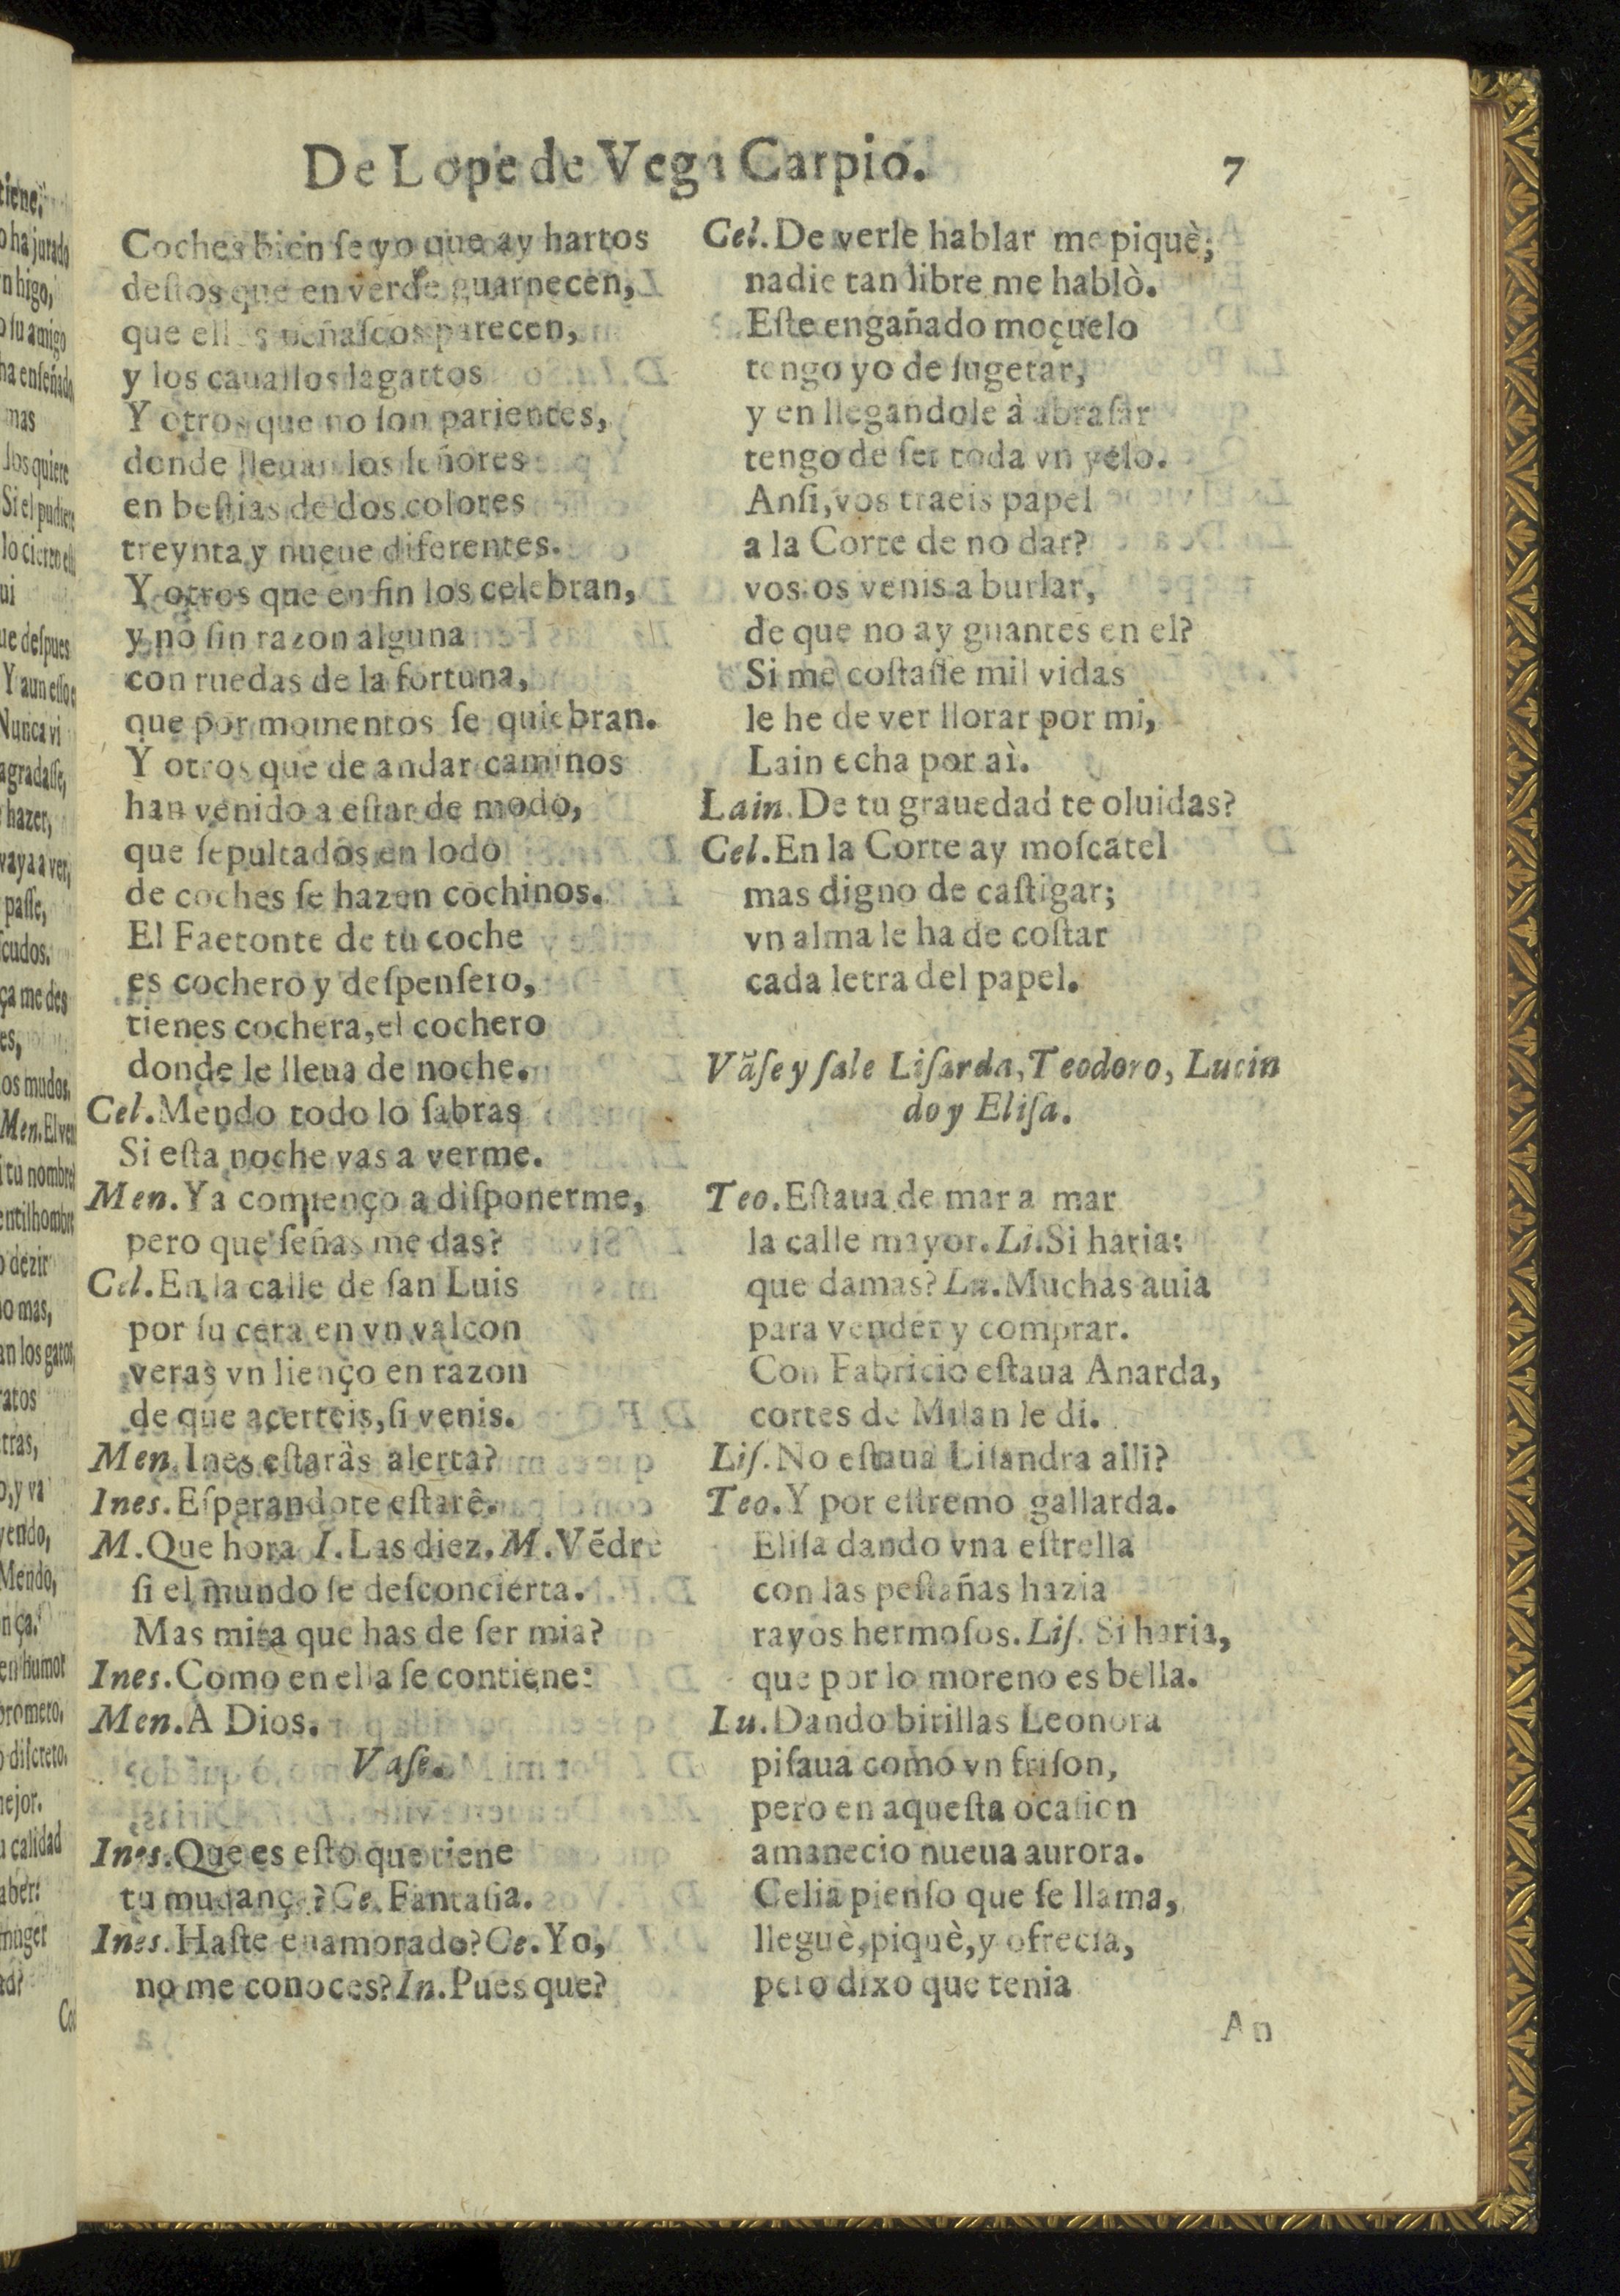 De Lope de Vega Carpio.
7
Coches bien ſe yo que ay hartos
deſtos que en verde guarnecen,
que ellos peñaſcos parecen,
y los cauallos lagartos
Y otros que no ſon parientes,
donde lleuan los ſeñores
en beſtias de dos colores
treynta y nueue diferentes.
Y otros que en fin los celebran,
y no ſin razon alguna
con ruedas de la fortuna,
que por momentos ſe quiebran.
Y otros que de andar caminos
han venido a eſtar de modo,
que ſepultados en lodo
de coches ſe hazen cochinos.
El Faetonte de tu coche
es cochero y deſpenſero,
tienes cochera, el cochero
donde le lleua de noche.
Cel. Mendo todo lo ſabras
Si eſta noche vas a verme.
Men. Ya comienço a diſponerme,
pero que ſeñas me das?
Cel. En la calle de ſan Luis
por ſu cera en vn valcon
veras vn lienço en razon
de que acerteis, ſi venis.
Men. Ines eſtaràs alerta?
Ines. Eſperandote eſtarê.
M. Que hora I. Las diez. M. Vẽdre
ſi el mundo ſe deſconcierta.
Mas mira que has de ſer mia?
Ines. Como en ella ſe contiene:
Men. A Dios.
Vaſe.
Ines. Que es eſto que tiene
tu mudança? Ce. Fantaſia.
Ines. Haſte enamorado? Ce. Yo,
no me conoces? In. Pues que?
Cel. De verle hablar me piquè;
nadie tan libre me hablò.
Eſte engañado moçuelo
tengo yo de ſugetar,
y en llegandole à abraſar
tengo de ſer toda vn yelo.
Anſi, vos traeis papel
a la Corte de no dar?
vos os venis a burlar,
de que no ay guantes en el?
Si me coſtaſſe mil vidas
le he de ver llorar por mi,
Lain echa por aì.
Lain. De tu grauedad te oluidas?
Cel. En la Corte ay moſcatel
mas digno de caſtigar;
vn alma le ha de coſtar
cada letra del papel.
Vãſe y ſale Liſarda, Teodoro, Lucin
do y Eliſa.
Teo. Eſtaua de mar a mar
la calle mayor. Li. Si haria:
que damas? Lu. Muchas auia
para vender y comprar.
Con Fabricio eſtaua Anarda,
cortes de Milan le di.
Liſ. No eſtaua Liſandra alli?
Teo. Y por eſtremo gallarda.
Eliſa dando vna eſtrella
con las peſtañas hazia
rayos hermoſos. Liſ. Si haria,
que por lo moreno es bella.
Lu. Dando birillas Leonora
piſaua como vn friſon,
pero en aqueſta ocaſion
amanecio nueua aurora.
Celia pienſo que ſe llama,
lleguè, piquè, y ofrecia,
pero dixo que tenia
An